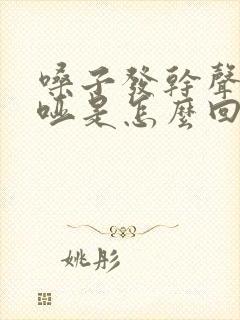 嗓子發幹聲
啞是怎麼回
姚彤